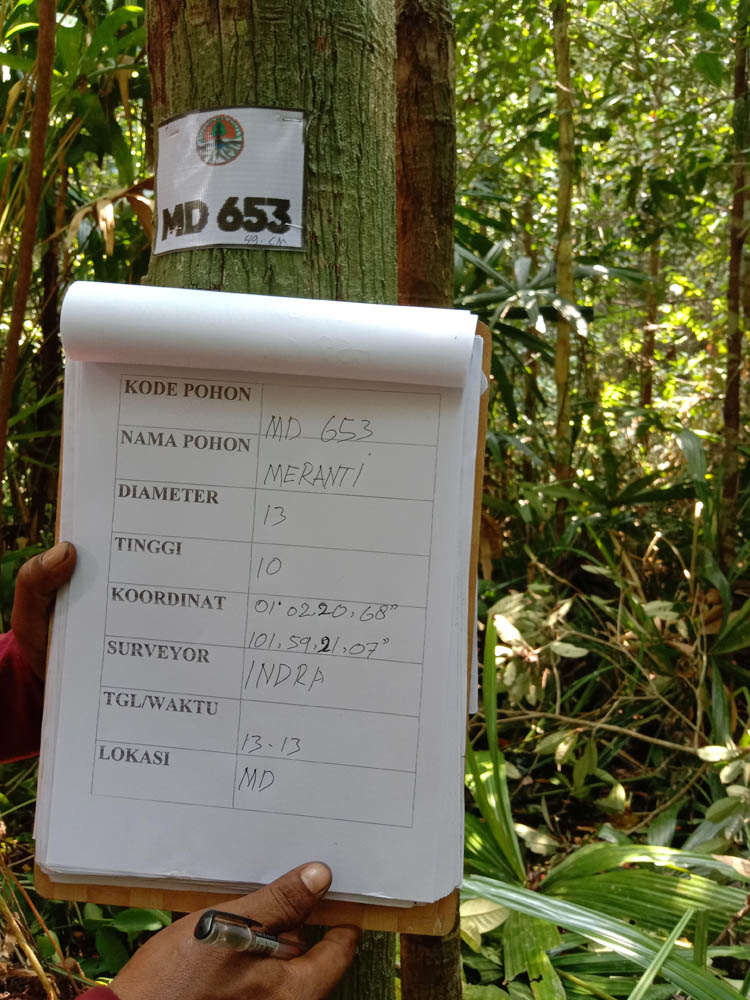 MD 653
49. CM
KODE POHON MD 653
NAMA POHON MERANTI
DIAMETER 13
TINGGI 10
KOORDINAT 01°02.20,68"
101,59,21,07"
SURVEYOR INDRA
TGL/WAKTU 13-13
LOKASI MD